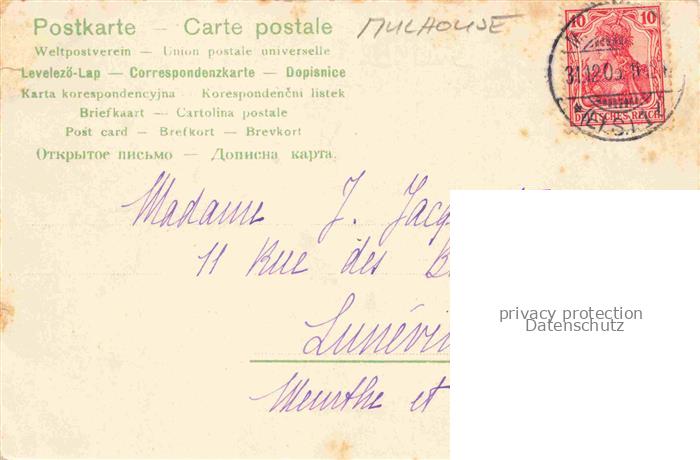 Postkarte — Carte postale
MULHOUSE
Weltpostverein — Union postale universelle
Levelező-Lap — Correspondenzkarte — Dopisnice
Karta korespondencyjna — Korespondenční listek
Briefkaart — Cartolina postale
Post card — Brefkort — Brevkort
Открытое письмо — Дописна карта.
10 10
31.12.05
DEUTSCHES REICH
Madame J. Jacq
11 Rue des B
Lunévi
Meurthe et
privacy protection
Datenschutz